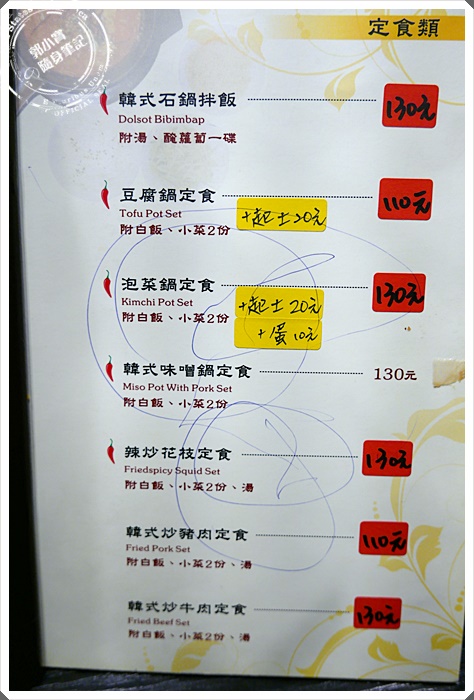 定食類
郭小寶
隨身筆記
韓式石鍋拌飯 130元
Dolsot Bibimbap
附湯、醃蘿蔔一碟
豆腐鍋定食 110元
Tofu Pot Set +起士20元
附白飯、小菜2份
泡菜鍋定食 130元
Kimchi Pot Set +起士20元
附白飯、小菜2份 +蛋10元
韓式味噌鍋定食 130元
Miso Pot With Pork Set
附白飯、小菜2份
辣炒花枝定食 130元
Friedspicy Squid Set
附白飯、小菜2份、湯
韓式炒豬肉定食 110元
Fried Pork Set
附白飯、小菜2份、湯
韓式炒牛肉定食 130元
Fried Beef Set
附白飯、小菜2份、湯